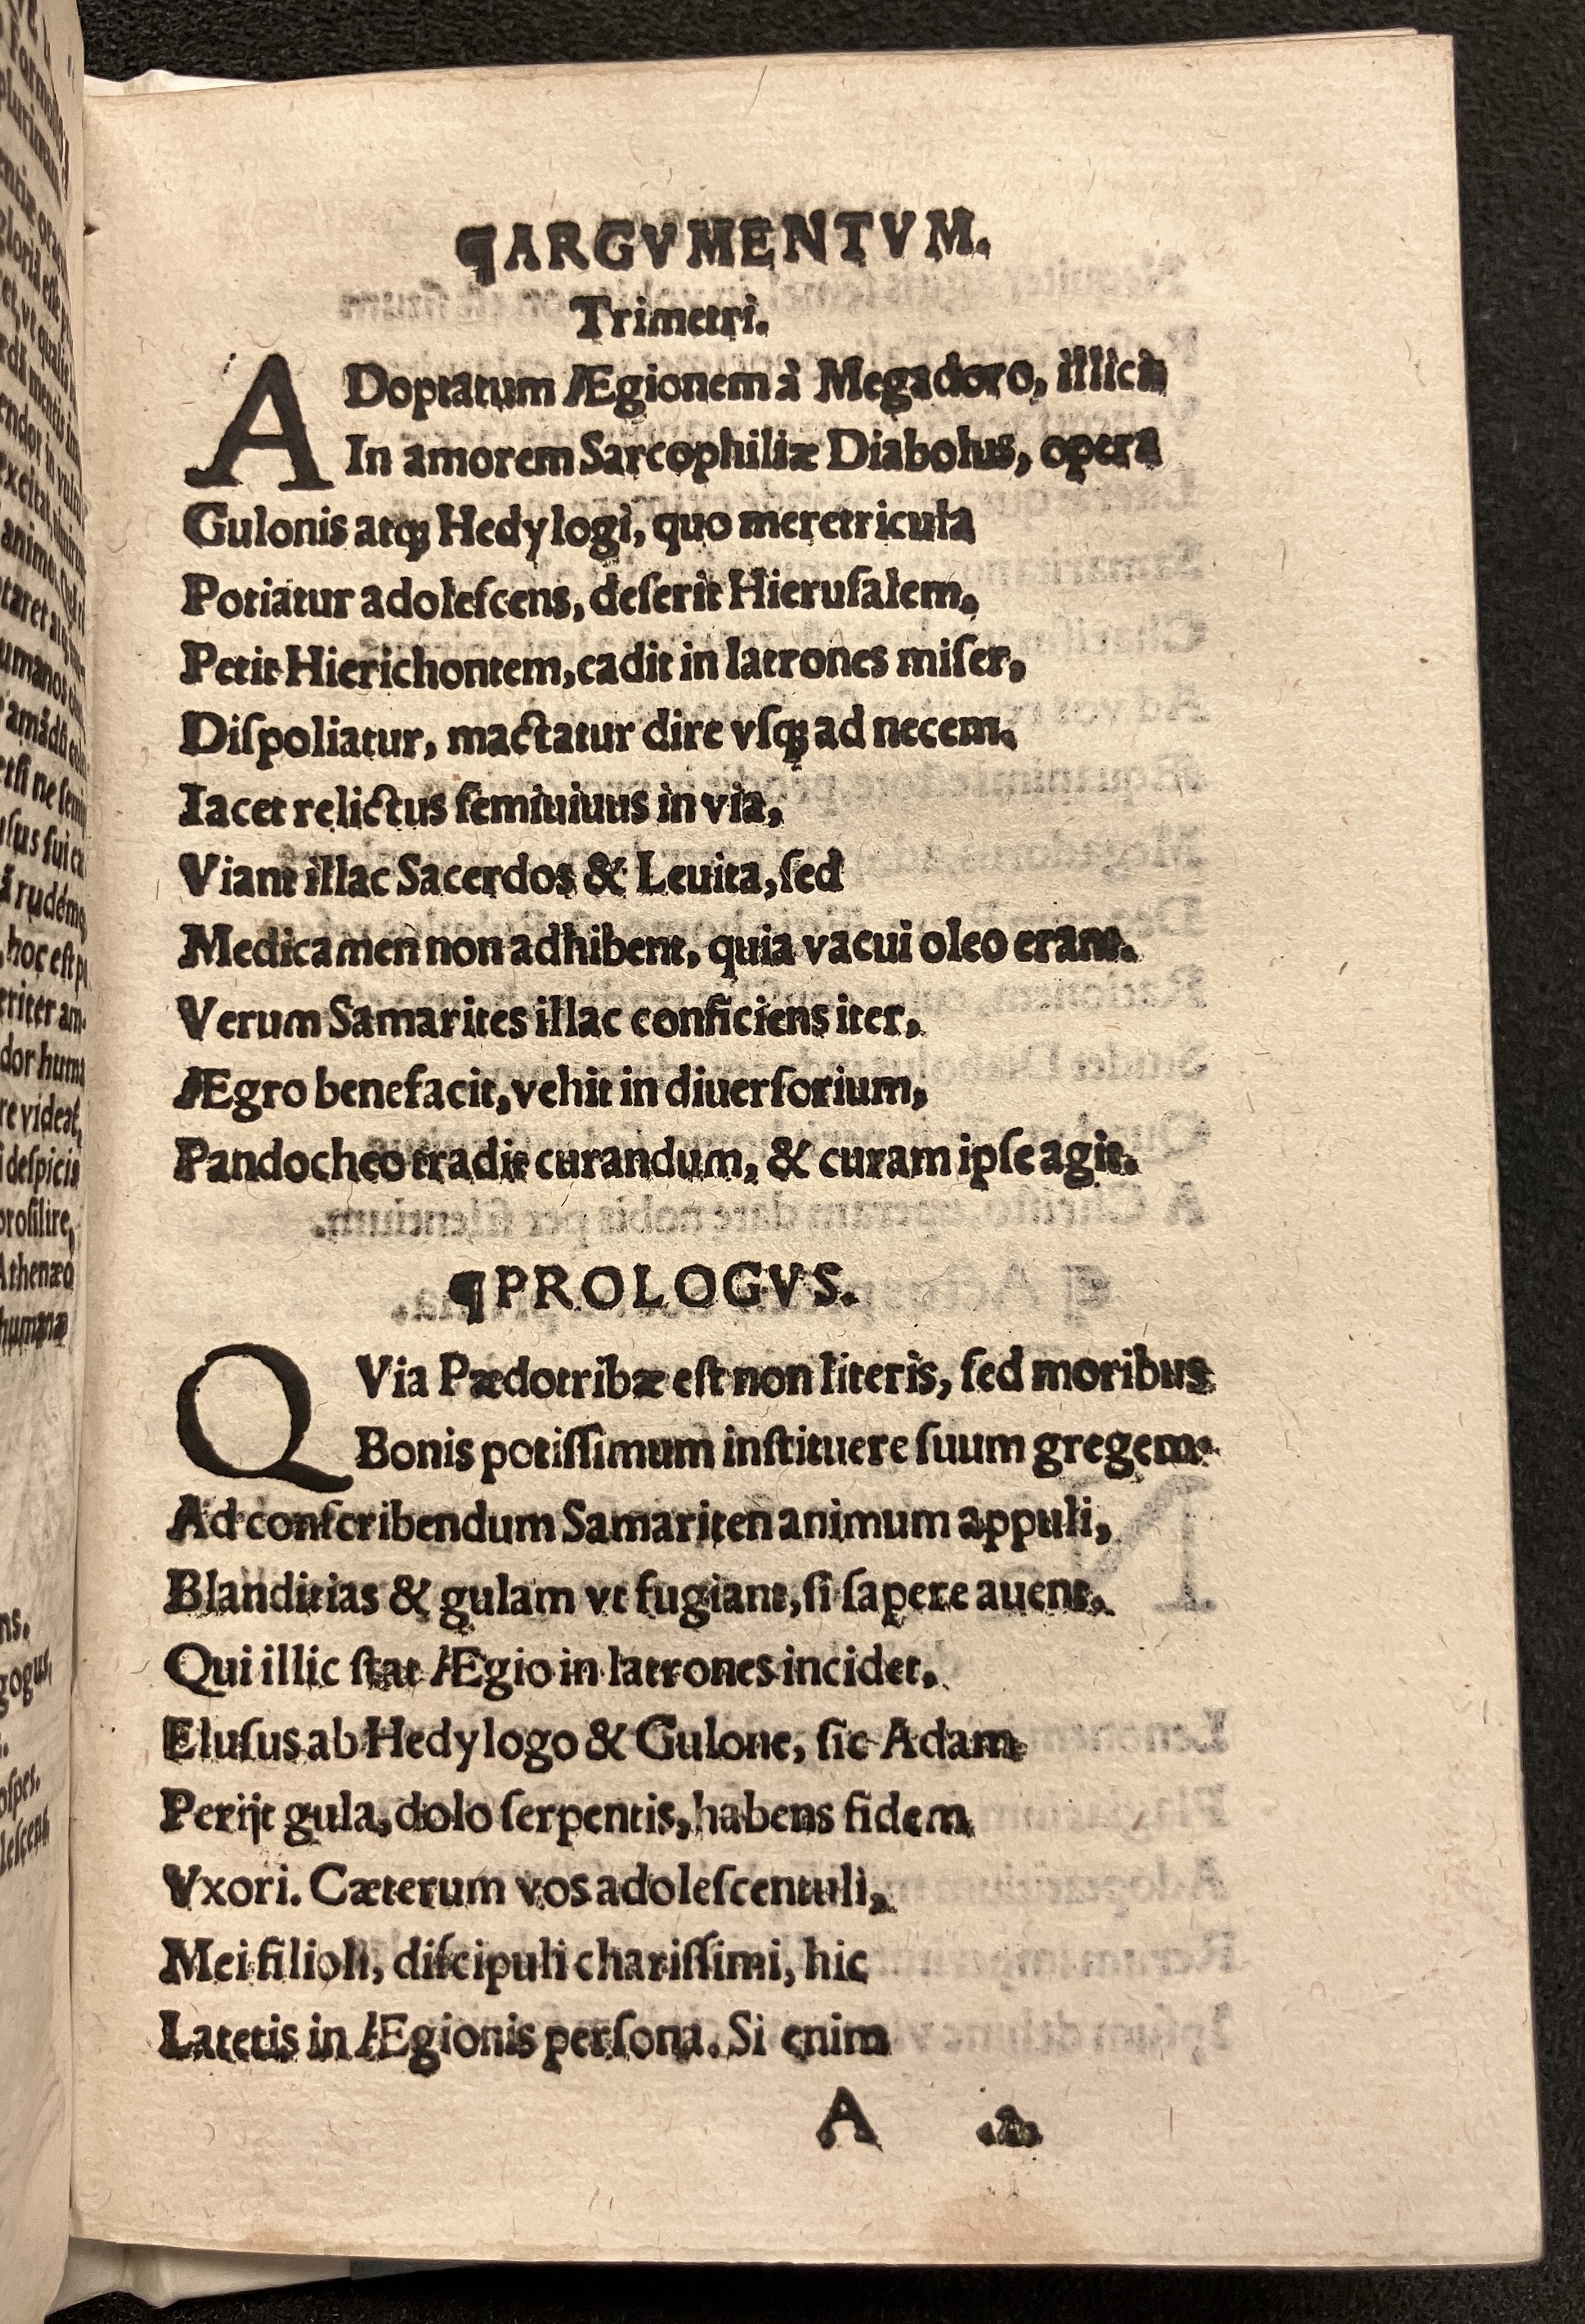 ¶ARGVMENTVM.
Trimetri.
ADoptatum Ægionem à Megadoro, illicit
In amorem Sarcophiliæ Diabolus, opera
Gulonis atq; Hedylogi, quo meretricula
Potiatur adoleſcens, deſerit Hieruſalem,
Petit Hierichontem, cadit in latrones miſer,
Diſpoliatur, mactatur dire vſq; ad necem.
Iacet relictus ſemiuiuus in via,
Viant illac Sacerdos & Leuita, ſed
Medicamen non adhibent, quia vacui oleo erant.
Verum Samarites illac conficiens iter,
Ægro benefacit, vehit in diuerſorium,
Pandocheo tradit curandum, & curam ipſe agit.
¶PROLOGVS.
QVia Pædotribæ eſt non literis, ſed moribus
Bonis potiſſimum inſtituere ſuum gregem.
Ad conſcribendum Samariten animum appuli,
Blanditias & gulam vt fugiant, ſi ſapere auent.
Qui illic ſtat Ægio in latrones incidet,
Eluſus ab Hedylogo & Gulone, ſic Adam
Perijt gula, dolo ſerpentis, habens fidem
Vxori. Cæterum vos adoleſcentuli,
Mei filioli, diſcipuli chariſſimi, hic
Latetis in Ægionis perſona. Si enim
A a